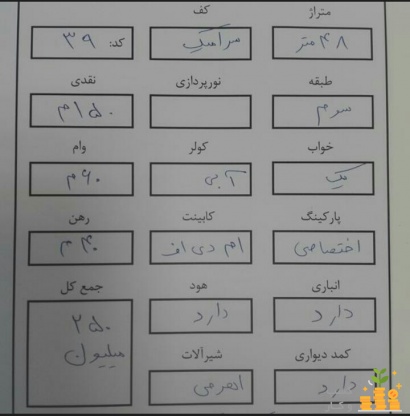 متراژ کف
۴۸ متر سرامیک کد: ۳۹
طبقه نورپردازی نقدی
سوم ۱۵۰ م
خواب کولر وام
یک آبی ۶۰ م
پارکینگ کابینت رهن
اختصاصی ام دی اف ۴۰ م
انباری هود جمع کل
دارد دارد ۲۵۰
میلیون
کمد دیواری شیرآلات
دارد اهرمی